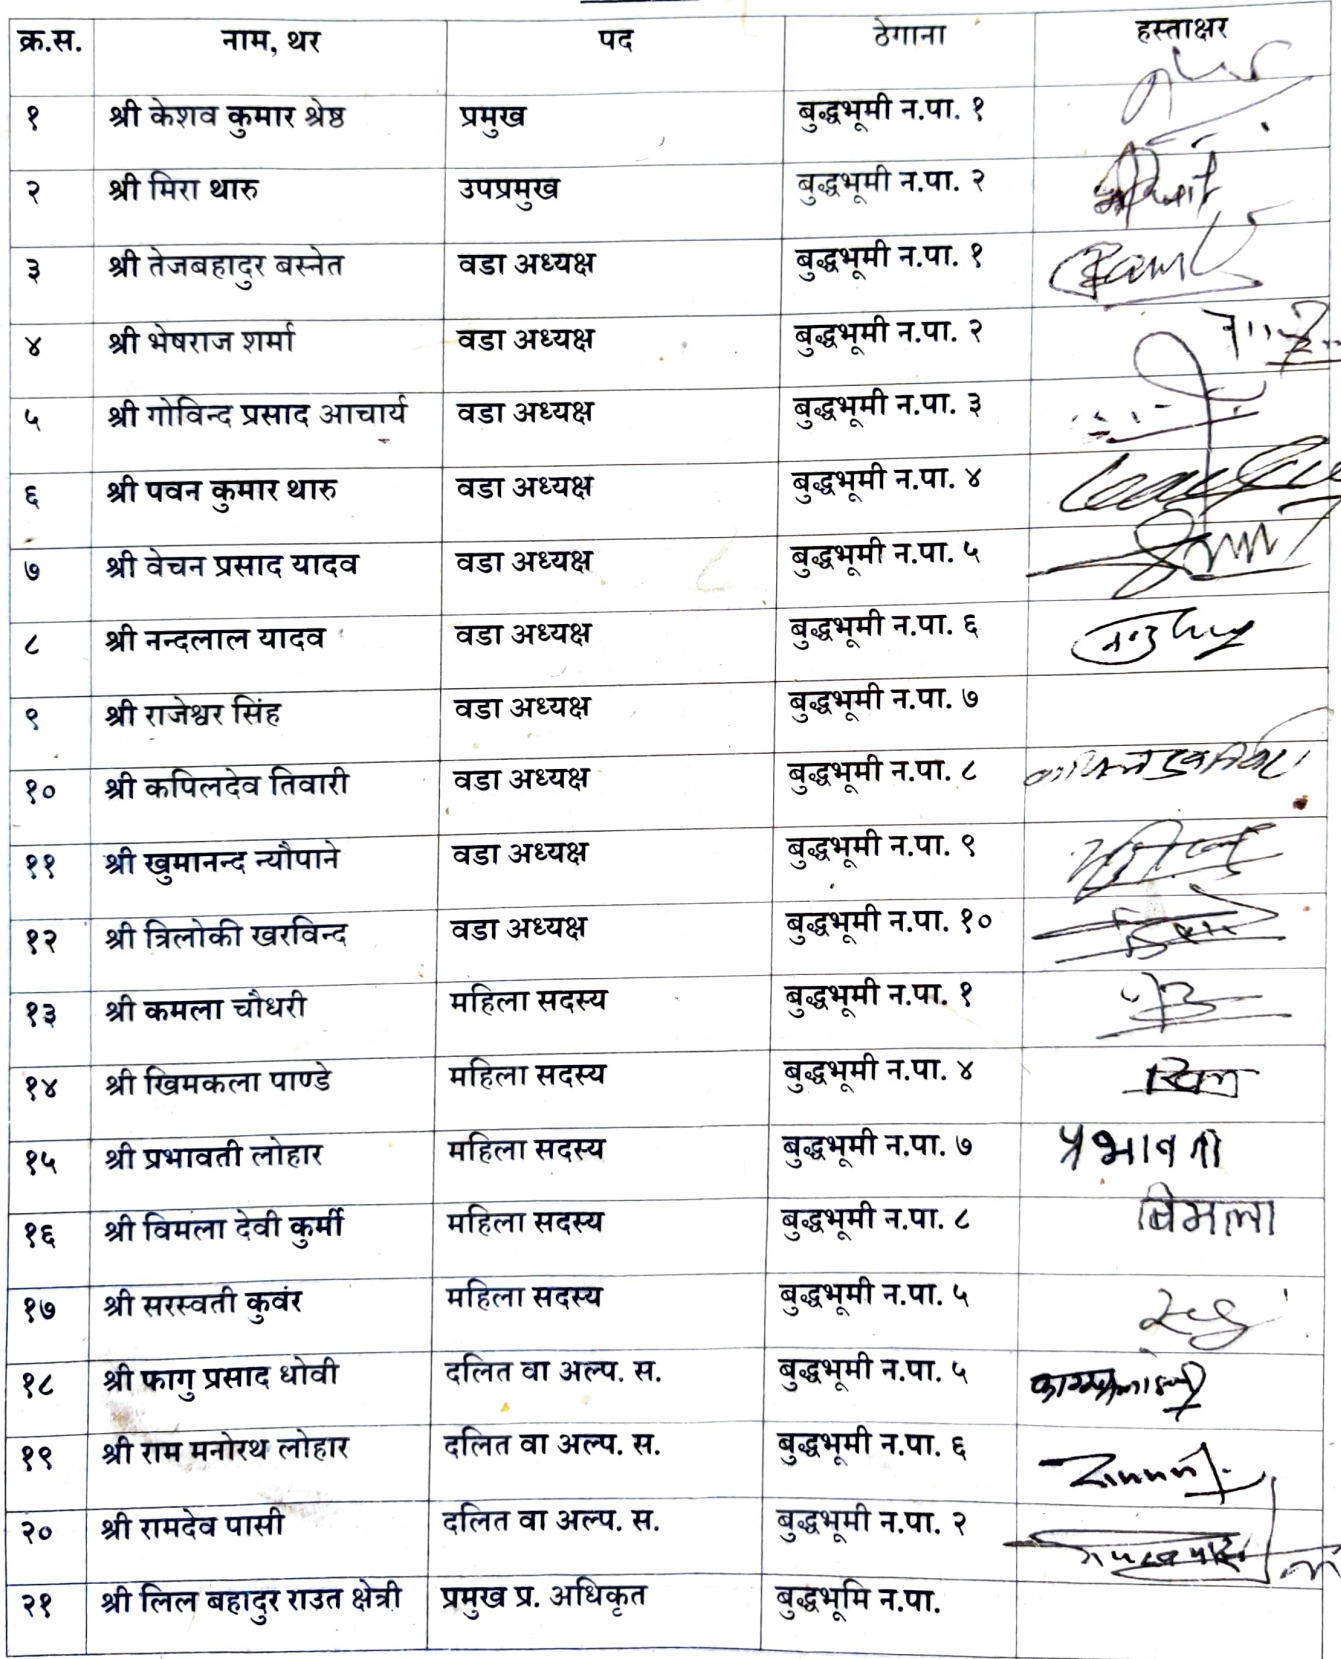 क्र.स. नाम, थर पद ठेगाना हस्ताक्षर
१ श्री केशव कुमार श्रेष्ठ प्रमुख बुद्धभूमी न.पा. १
२ श्री मिरा थारु उपप्रमुख बुद्धभूमी न.पा. २
३ श्री तेजबहादुर बस्नेत वडा अध्यक्ष बुद्धभूमी न.पा. १
४ श्री भेषराज शर्मा वडा अध्यक्ष बुद्धभूमी न.पा. २
५ श्री गोविन्द प्रसाद आचार्य वडा अध्यक्ष बुद्धभूमी न.पा. ३
६ श्री पवन कुमार थारु वडा अध्यक्ष बुद्धभूमी न.पा. ४
७ श्री वेचन प्रसाद यादव वडा अध्यक्ष बुद्धभूमी न.पा. ५
८ श्री नन्दलाल यादव वडा अध्यक्ष बुद्धभूमी न.पा. ६
९ श्री राजेश्वर सिंह वडा अध्यक्ष बुद्धभूमी न.पा. ७
१० श्री कपिलदेव तिवारी वडा अध्यक्ष बुद्धभूमी न.पा. ८
११ श्री खुमानन्द न्यौपाने वडा अध्यक्ष बुद्धभूमी न.पा. ९
१२ श्री त्रिलोकी खरविन्द वडा अध्यक्ष बुद्धभूमी न.पा. १०
१३ श्री कमला चौधरी महिला सदस्य बुद्धभूमी न.पा. १
१४ श्री खिमकला पाण्डे महिला सदस्य बुद्धभूमी न.पा. ४
१५ श्री प्रभावती लोहार महिला सदस्य बुद्धभूमी न.पा. ७ प्रभावती
१६ श्री विमला देवी कुर्मी महिला सदस्य बुद्धभूमी न.पा. ८ बिमला
१७ श्री सरस्वती कुवंर महिला सदस्य बुद्धभूमी न.पा. ५
१८ श्री फागु प्रसाद धोवी दलित वा अल्प. स. बुद्धभूमी न.पा. ५
१९ श्री राम मनोरथ लोहार दलित वा अल्प. स. बुद्धभूमी न.पा. ६
२० श्री रामदेव पासी दलित वा अल्प. स. बुद्धभूमी न.पा. २
२१ श्री लिल बहादुर राउत क्षेत्री प्रमुख प्र. अधिकृत बुद्धभूमि न.पा.